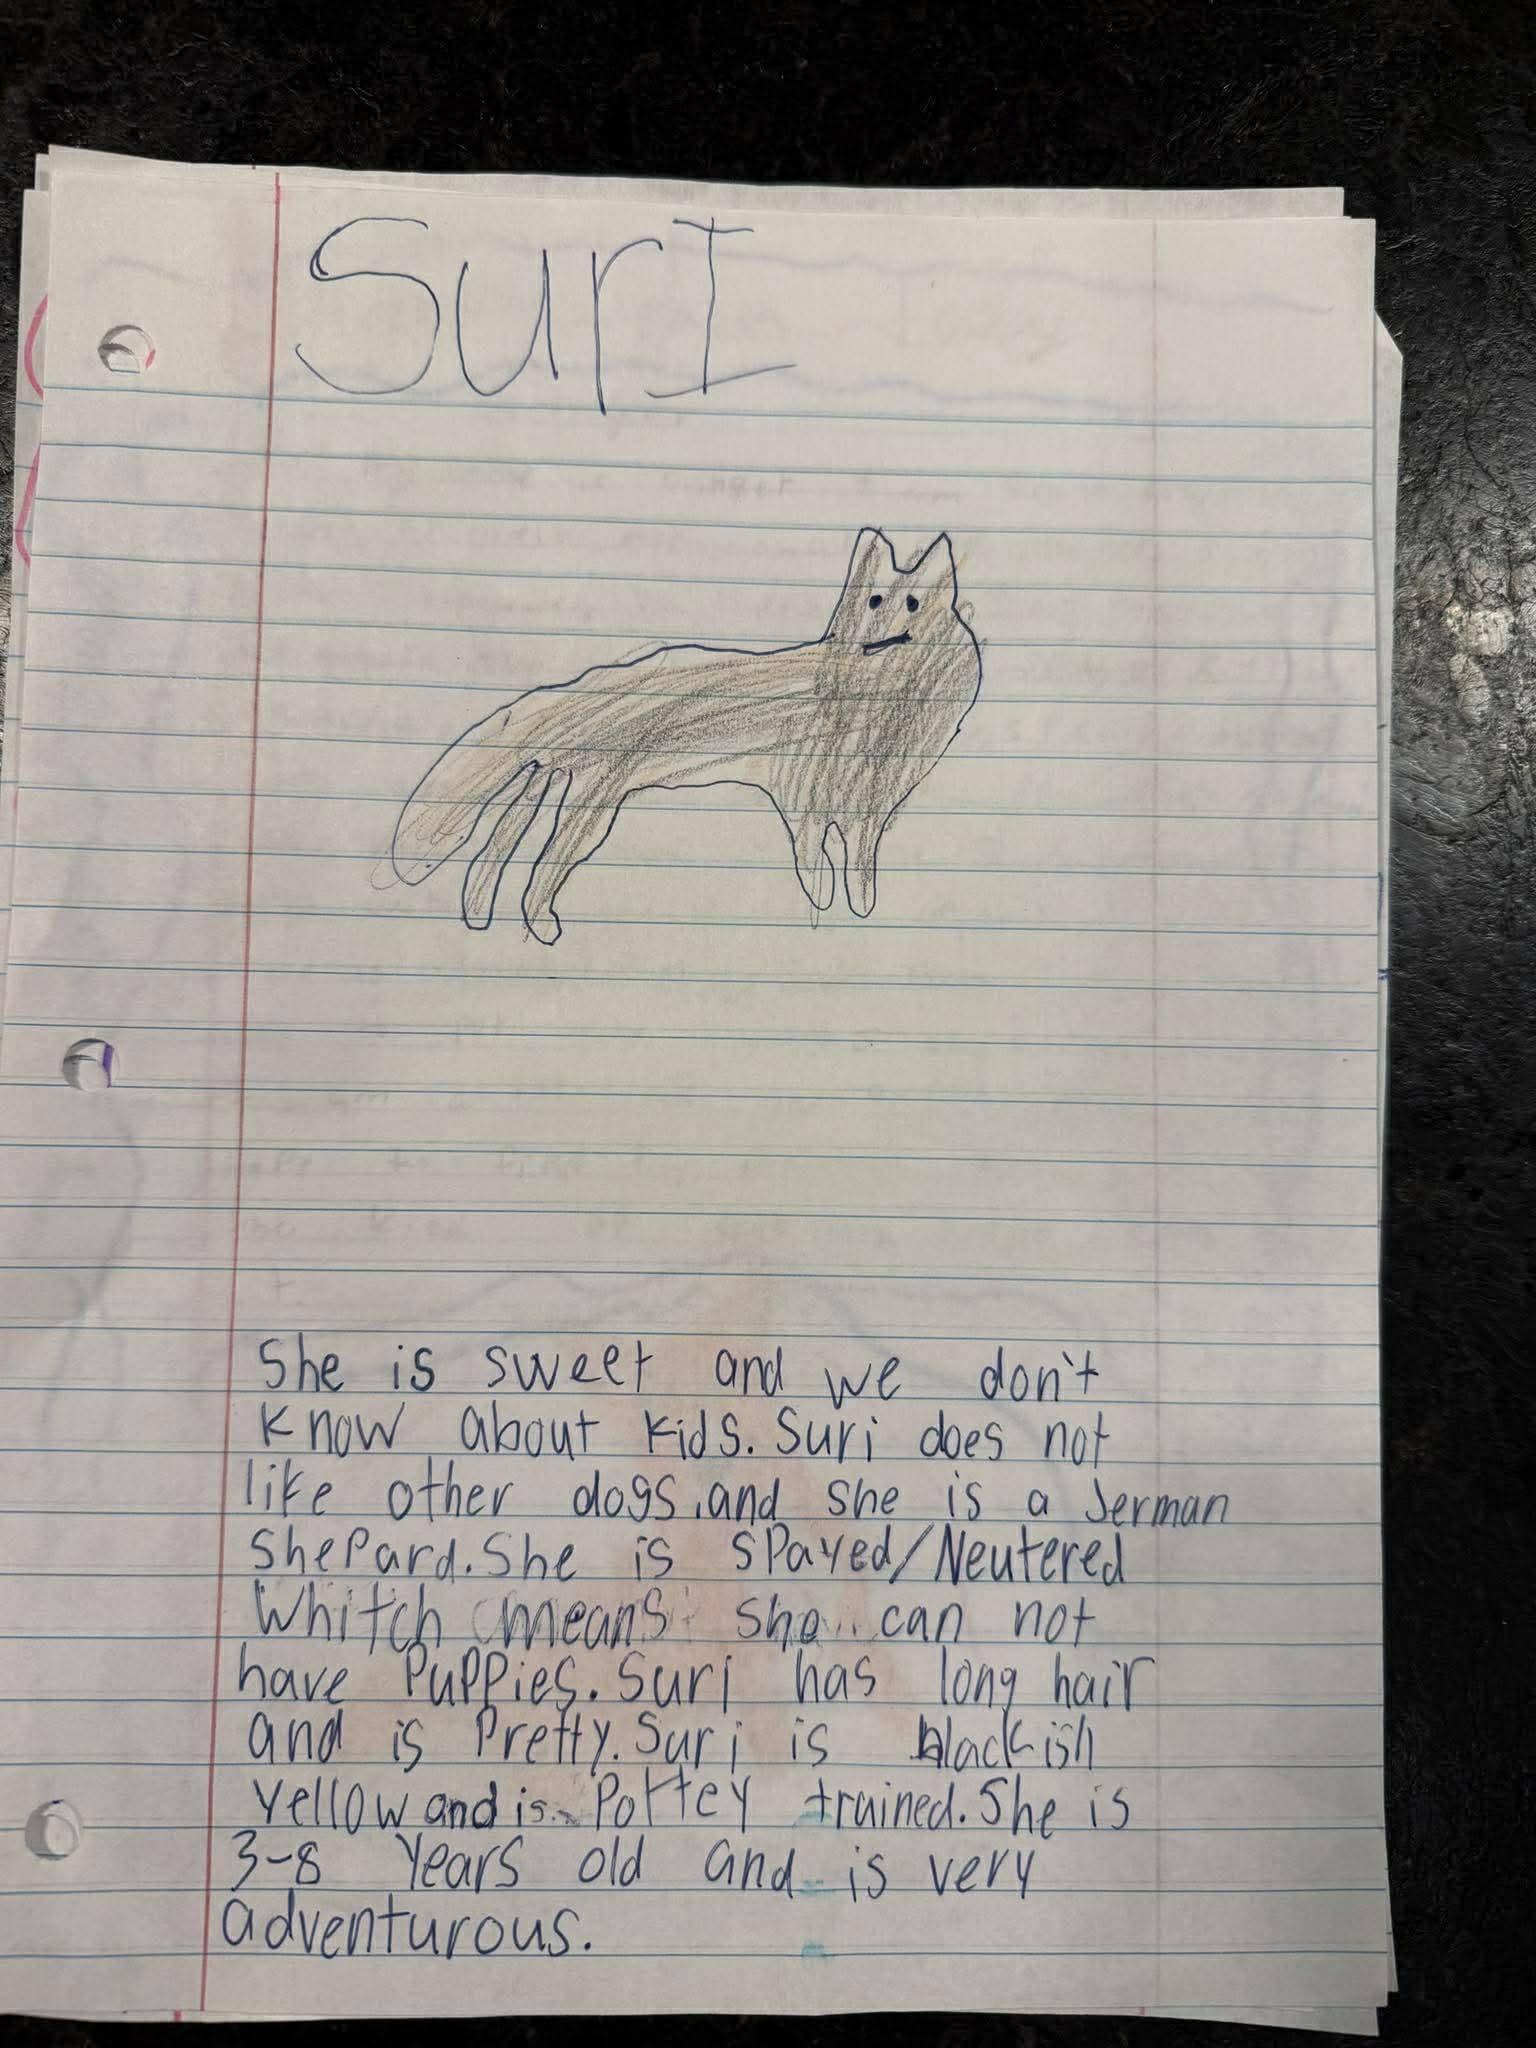 SurI
She is sweet and we don't
know about kids. Suri does not
like other dogs, and she is a Jerman
Shepard. She is spayed/Neutered
Whitch means she can not
have Puppies. Suri has long hair
and is Pretty. Suri is blackish
Yellow and is Pottey trained. She is
3-8 Years old and is very
adventurous.